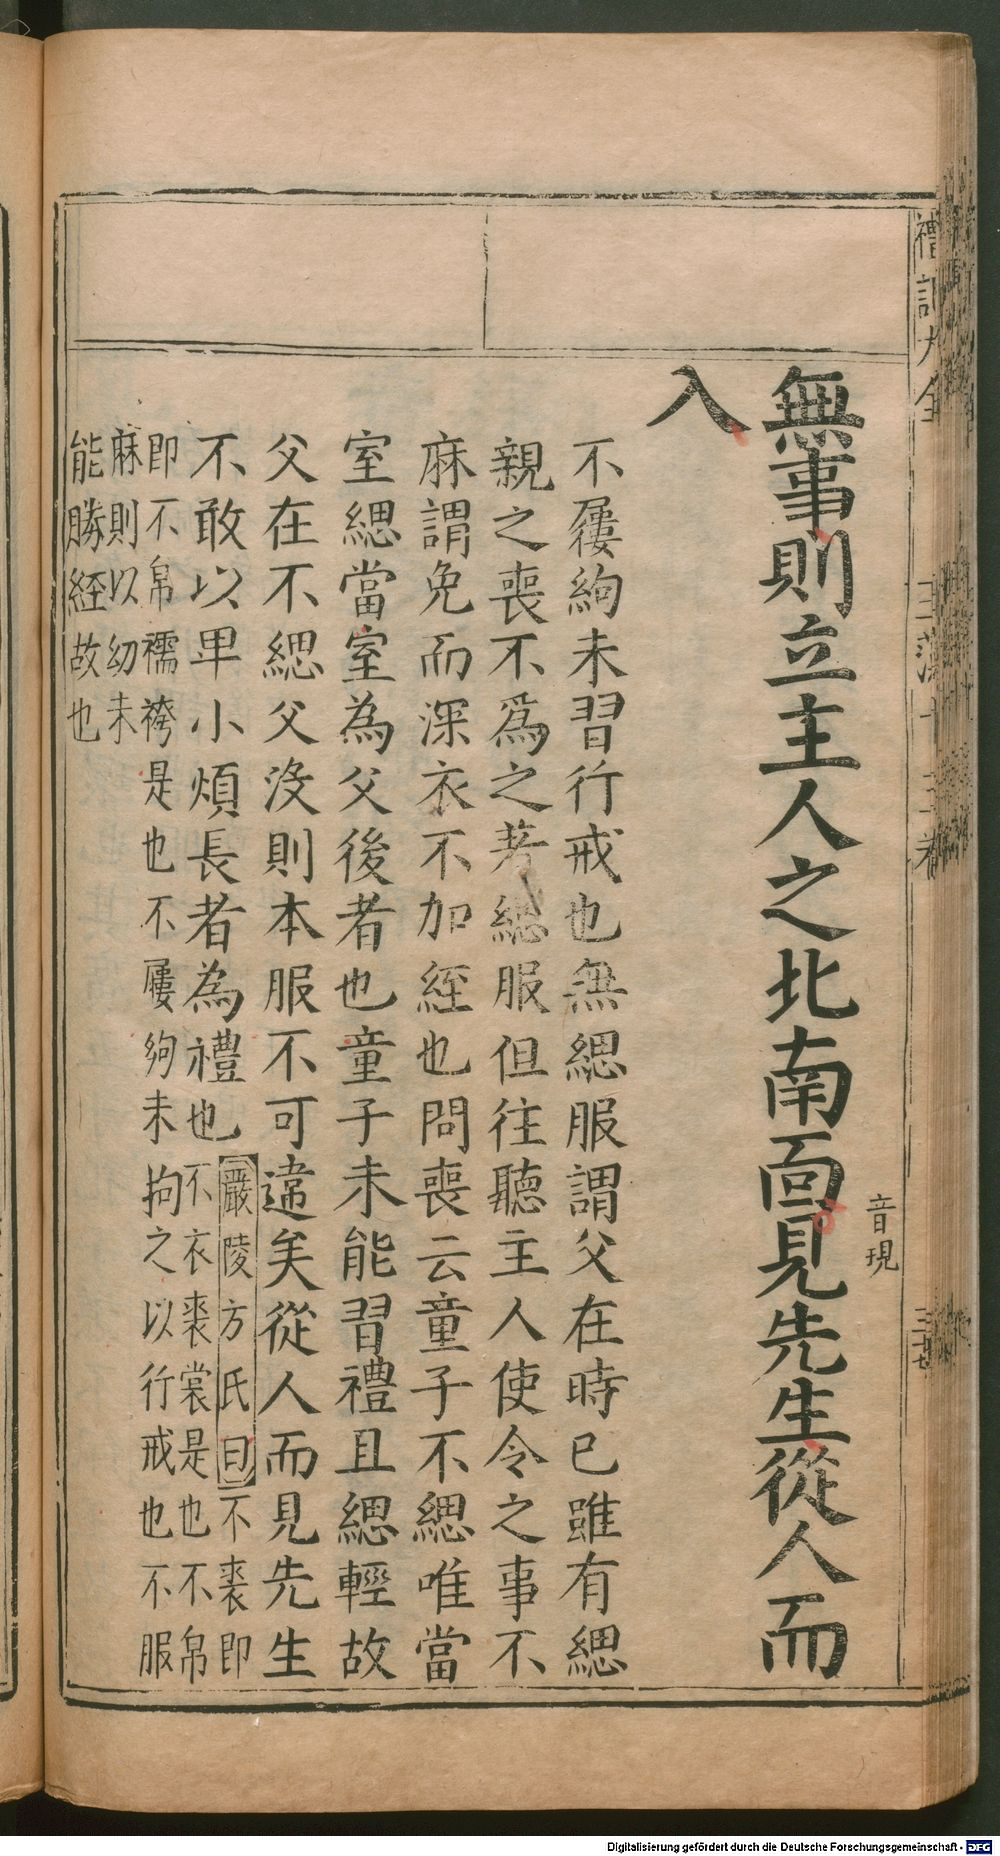 禮記大全
無事則立主人之北南面見先生從人而
音現
入
不屨絇未習行戒也無緦服謂父在時已雖有緦
親之喪不爲之著緦服但往聽主人使令之事不
麻謂免而深衣不加絰也問喪云童子不緦唯當
室緦當室為父後者也童子未能習禮且緦輕故
父在不緦父沒則本服不可違矣從人而見先生
不敢以卑小煩長者為禮也
嚴陵方氏曰不裘即
不衣裘裳是也不帛
即不帛襦袴是也不屨絢未拘之以行戒也不服
麻則以幼未
能勝経故也
Digitalisierung gefördert durch die Deutsche Forschungsgemeinschaft - DFG